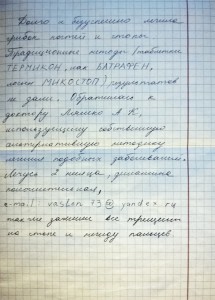 Долго и безуспешно лечила
грибок ногтей и стопы
Традиционные методы (таблетки
ТЕРМИКОН, лак БАТРАФЕН,
МИКОСТОП) результатов
не дали. Обратилась к
доктору Ляшко А К,
использующему собственную
альтернативную методику
лечения подобных заболеваний.
2 месяца, динамика
положительная,
e-mail vasten 73@yandex.ru
так же зажили все трещины
на стопе и между пальцев